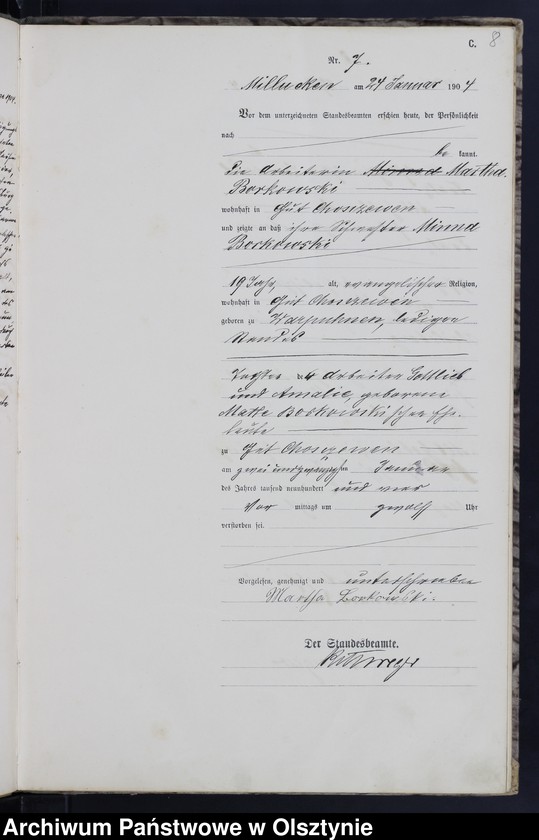 C. 8
Nr. 7.
Millucken am 24 Januar 1904
Vor dem unterzeichneten Standesbeamten erschien heute, der Persönlichkeit
nach
be kannt,
die Arbeiterin Martha
Borkowski
wohnhaft in Gut Choszewen
und zeigte an, daß ihre Schwester Minna
Borkowski
19 Jahr, alt, evangelischer Religion,
wohnhaft in Gut Choszewen
geboren zu lediger
Standes
Tochter der Arbeiter Gottlieb
und Amalie, geborenen
Borkowski'schen Ehe-
leute
zu Gut Choszewen
am zwei und zwanzigsten Januar
des Jahres tausend neunhundert und vier
Vor mittags um zwölf Uhr
verstorben sei.
Vorgelesen, genehmigt und unterschrieben
Martha Borkowski.
Der Standesbeamte.
Archiwum Państwowe w Olsztynie